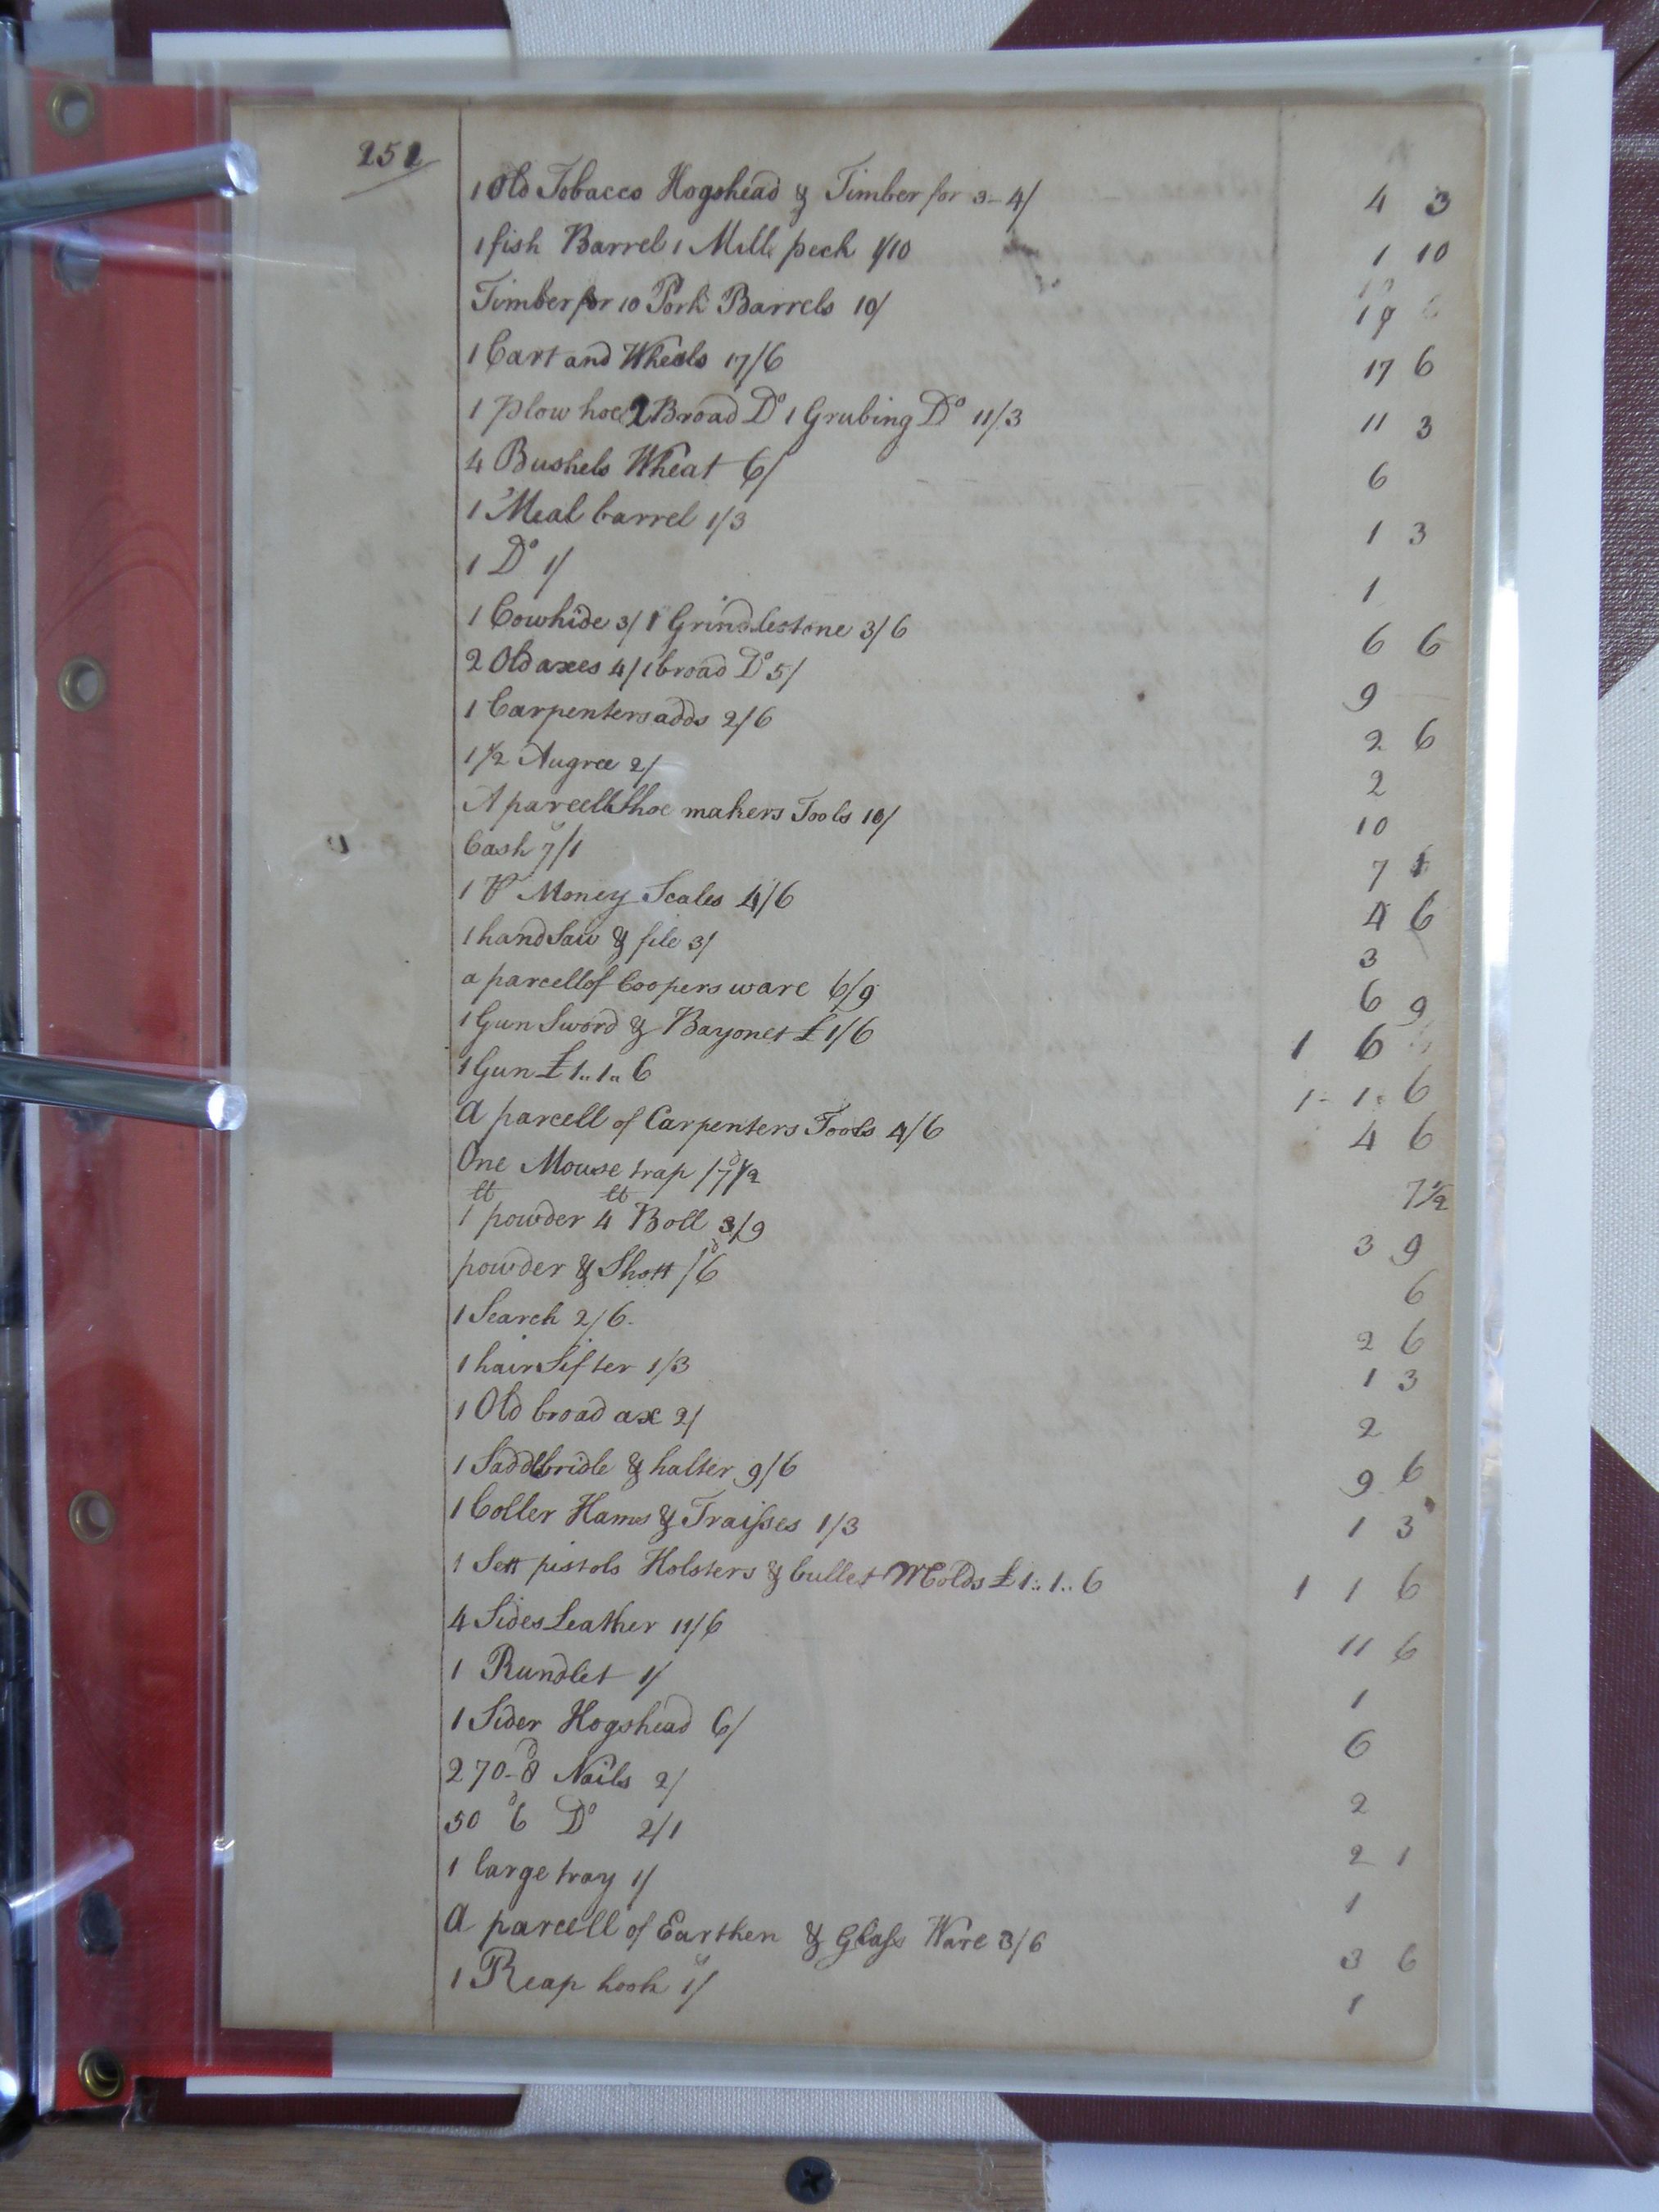 252
1 Old Tobacco Hogshead & Timber for 3 - 4/ 4 3
1 fish Barrel 1 Mill peck 1/10 1 10
Timber for 10 Pork Barrels 10/ 10
1 Cart and Wheels 17/6 17 6
1 plow hoe 2 Broad Do 1 Grubing Do 11/3 11 3
4 Bushels Wheat 6/ 6
1 Meal barrel 1/3 1 3
1 Do 1/ 1
1 Cowhide 3/ 1 Grindlestone 3/6 6 6
2 Old axes 4/ 1 broad Do 5/ 9
1 Carpenters adds 2/6 2 6
1 1/2 Augree 2/ 2
A parcell Shoe makers Tools 10/ 10
Cash 7/1 7 1
1 Pr Money Scales 4/6 4 6
1 hand Saw & file 3/ 3
a parcell of Coopers ware 6/9 6 9
1 Gun Sword & Bayonet £1/6 1 6
1 Gun £1..1..6 1-1-6
A parcell of Carpenters Tools 4/6 4 6
One Mouse trap /7d1/2 7 1/2
1 lb powder 4 lb Boll 3/9 3 9
powder & Shott /6d 6
1 Search 2/6 2 6
1 hair Sifter 1/3 1 3
1 Old broad ax 2/ 2
1 Saddlbridle & halter 9/6 9 6
1 Coller Hams & Traisses 1/3 1 3
1 Sett pistols Holsters & bullet Molds £1..1..6 1 1 6
4 Sides Leather 11/6 11 6
1 Rundlet 1/ 1
1 Sider Hogshead 6/ 6
270 - 8d Nails 2/ 2
50 6d Do 2/1 2 1
1 large tray 1/ 1
A parcell of Earthen & Glass Ware 3/6 3 6
1 Reap hook 1/ 1